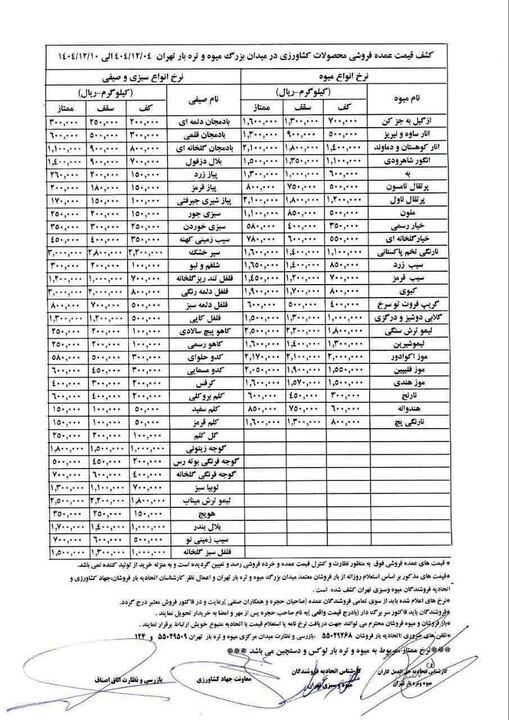 کشف قیمت عمده فروشی محصولات کشاورزی در میدان بزرگ میوه و تره بار تهران ۴۰۴/۱۲/۰۴ الی ۱۴۰۴/۱۲/۱۰
نرخ انواع میوه
نام میوه (کیلوگرم-ریال)
کف سقف ممتاز
ازگیل به جز کن ۷۰۰,۰۰۰ ۱,۳۰۰,۰۰۰ ۱,۶۰۰,۰۰۰
انار ساوه و نیریز ۵۰۰,۰۰۰ ۹۰۰,۰۰۰ ۱,۳۰۰,۰۰۰
انار کوهستان و دماوند ۱,۴۰۰,۰۰۰ ۱,۸۰۰,۰۰۰ ۲,۱۰۰,۰۰۰
انگور شاهرودی ۱,۱۰۰,۰۰۰ ۱,۳۵۰,۰۰۰ ۱,۵۰۰,۰۰۰
به ۶۰۰,۰۰۰ ۱,۰۰۰,۰۰۰ ۱,۳۰۰,۰۰۰
پرتقال تامسون ۵۰۰,۰۰۰ ۷۵۰,۰۰۰ ۸۰۰,۰۰۰
پرتقال ناول ۱,۲۰۰,۰۰۰ ۱,۸۰۰,۰۰۰ ۲,۱۰۰,۰۰۰
ملون ۵۰۰,۰۰۰ ۸۵۰,۰۰۰
خیار رسمی ۳۵۰,۰۰۰ ۴۰۰,۰۰۰ ۵۸۰,۰۰۰
خیار گلخانه ای ۵۵۰,۰۰۰ ۶۰۰,۰۰۰ ۷۸۰,۰۰۰
نارنگی تخم پاکستانی ۱,۱۰۰,۰۰۰ ۱,۴۰۰,۰۰۰ ۱,۶۰۰,۰۰۰
سیب زرد ۸۵۰,۰۰۰ ۱,۴۰۰,۰۰۰ ۱,۶۵۰,۰۰۰
سیب قرمز ۷۰۰,۰۰۰ ۱,۲۰۰,۰۰۰ ۱,۴۵۰,۰۰۰
کیوی ۸۰۰,۰۰۰ ۱,۷۰۰,۰۰۰ ۱,۹۰۰,۰۰۰
گریپ فروت تو سرخ ۴۰۰,۰۰۰ ۵۰۰,۰۰۰ ۶۰۰,۰۰۰
گلابی دوشیز و درگزی ۱,۰۰۰,۰۰۰ ۱,۳۰۰,۰۰۰
لیمو ترش سنگی ۱,۸۰۰,۰۰۰ ۲,۲۰۰,۰۰۰ ۲,۵۰۰,۰۰۰
لیموشیرین ۱,۳۰۰,۰۰۰ ۱,۴۰۰,۰۰۰ ۱,۶۰۰,۰۰۰
موز اکوادور ۲,۰۰۰,۰۰۰ ۲,۱۰۰,۰۰۰ ۲,۱۷۰,۰۰۰
موز فلیپین ۱,۵۵۰,۰۰۰ ۱,۹۰۰,۰۰۰ ۲,۰۵۰,۰۰۰
موز هندی ۱,۵۰۰,۰۰۰ ۱,۵۷۰,۰۰۰ ۱,۶۰۰,۰۰۰
نارنج ۳۰۰,۰۰۰ ۴۵۰,۰۰۰ ۶۰۰,۰۰۰
هندوانه ۶۰۰,۰۰۰ ۷۵۰,۰۰۰ ۸۵۰,۰۰۰
نارنگی پج ۸۰۰,۰۰۰ ۱,۳۰۰,۰۰۰ ۱,۶۰۰,۰۰۰
نرخ انواع سبزی و صیفی
نام صیفی (کیلوگرم-ریال)
کف سقف ممتاز
بادمجان دلمه ای ۲۰۰,۰۰۰ ۲۵۰,۰۰۰ ۳۰۰,۰۰۰
بادمجان قلمی ۳۰۰,۰۰۰ ۵۰۰,۰۰۰ ۶۰۰,۰۰۰
بادمجان گلخانه ای ۸۰۰,۰۰۰ ۹۰۰,۰۰۰ ۱,۱۰۰,۰۰۰
بلال دزفول ۷۰۰,۰۰۰ ۹۰۰,۰۰۰ ۱,۴۰۰,۰۰۰
پیاز زرد ۱۵۰,۰۰۰ ۲۰۰,۰۰۰ ۲۶۰,۰۰۰
پیاز قرمز ۱۵۰,۰۰۰ ۱۸۰,۰۰۰ ۲۰۰,۰۰۰
پیاز شیری جیرفتی ۱۰۰,۰۰۰ ۱۵۰,۰۰۰ ۱۷۰,۰۰۰
سبزی جور ۱۵۰,۰۰۰ ۲۰۰,۰۰۰ ۲۵۰,۰۰۰
سبزی خوردن ۲۵۰,۰۰۰ ۳۰۰,۰۰۰ ۳۵۰,۰۰۰
سیب زمینی کهنه ۳۵۰,۰۰۰ ۴۰۰,۰۰۰ ۴۵۰,۰۰۰
سیر خشک ۲,۲۰۰,۰۰۰ ۲,۸۰۰,۰۰۰ ۳,۰۰۰,۰۰۰
شلغم و لبو ۱۰۰,۰۰۰ ۲۰۰,۰۰۰ ۳۰۰,۰۰۰
فلفل تند ریز گلخانه ۷۰۰,۰۰۰ ۱,۰۰۰,۰۰۰ ۱,۲۰۰,۰۰۰
فلفل دلمه رنگی ۸۰۰,۰۰۰ ۲,۰۰۰,۰۰۰
فلفل دلمه سبز ۵۰۰,۰۰۰ ۷۰۰,۰۰۰ ۸۰۰,۰۰۰
فلفل کاپی ۵۰۰,۰۰۰ ۱,۲۰۰,۰۰۰ ۱,۳۰۰,۰۰۰
کاهو پیچ سالادی ۱۰۰,۰۰۰ ۲۰۰,۰۰۰ ۲۵۰,۰۰۰
کاهو رسمی ۱۰۰,۰۰۰ ۲۰۰,۰۰۰ ۲۵۰,۰۰۰
کدو حلوای ۳۰۰,۰۰۰ ۵۰۰,۰۰۰ ۵۸۰,۰۰۰
کدو مسمایی ۳۰۰,۰۰۰ ۴۵۰,۰۰۰ ۶۰۰,۰۰۰
کرفس ۲۰۰,۰۰۰ ۳۰۰,۰۰۰ ۴۰۰,۰۰۰
کلم بروکلی ۲۰۰,۰۰۰ ۴۰۰,۰۰۰ ۶۰۰,۰۰۰
کلم سفید ۵۰,۰۰۰ ۱۰۰,۰۰۰ ۱۵۰,۰۰۰
کلم قرمز ۵۰,۰۰۰ ۱۰۰,۰۰۰ ۱۵۰,۰۰۰
گل کلم ۱۰۰,۰۰۰ ۲۰۰,۰۰۰ ۲۵۰,۰۰۰
گوجه زیتونی ۱,۰۰۰,۰۰۰ ۱,۵۰۰,۰۰۰ ۱,۸۰۰,۰۰۰
گوجه فرنگی بوته رس ۲۰۰,۰۰۰ ۴۵۰,۰۰۰ ۵۰۰,۰۰۰
گوجه فرنگی گلخانه ۴۰۰,۰۰۰ ۶۰۰,۰۰۰ ۷۰۰,۰۰۰
لوبیا سبز ۷۰۰,۰۰۰ ۱,۱۰۰,۰۰۰ ۱,۳۰۰,۰۰۰
لیمو ترش میناب ۱,۸۰۰,۰۰۰ ۲,۲۰۰,۰۰۰ ۲,۵۰۰,۰۰۰
هویج ۱۵۰,۰۰۰ ۲۵۰,۰۰۰ ۳۵۰,۰۰۰
بلال بندر ۱,۰۰۰,۰۰۰ ۱,۴۰۰,۰۰۰ ۱,۷۰۰,۰۰۰
سیب زمینی نو ۵۰۰,۰۰۰ ۶۰۰,۰۰۰ ۷۰۰,۰۰۰
فلفل سبز گلخانه ۱,۰۰۰,۰۰۰ ۱,۳۰۰,۰۰۰ ۱,۵۰۰,۰۰۰
* قیمت های عمده فروشی فوق به منظور نظارت و کنترل قیمت عمده و خرده فروشی رصد و تعیین گردیده است و به منزله خرید از تولید کننده نمی باشد.
*قیمت های مذکور بر اساس استعلام روزانه از بار فروشان معتمد میدان بزرگ میوه و تره بار تهران و اعمال نظر کارشناسان اتحادیه بار فروشان،جهاد کشاورزی و
اتحادیه فروشندگان میوه وسبزی تهران کشف شده است.
*نرخ های اعلام شده باید از سوی تمامی فروشندگان عمده (صاحبان حجره و همکاران صنفی) رعایت و در فاکتور فروش معتبر درج گردد.
*فروشندگان باید فاکتور سر برگ دار (بادرج قیمت واقعی) به نام صاحب حجره پس از مهر و امضا به خریدار تحویل نمایند.
*بار فروشان و میوه فروشان محترم می توانند جهت دریافت نرخ نامه یا استعلام قیمت با اتحادیه متبوع خویش ارتباط برقرار نمایند.
*تلفن های ضروری :اتحادیه بار فروشان ۵۵۰۲۹۲۶۸ -بازرسی و نظارت میدان مرکزی میوه و تره بار تهران ۵۵۰۲۹۵۰۹ و ۱۲۴
***نرخ ممتاز مربوط به میوه و تره بار لوکس و دستچین می باشد***
کارشناس اتحادیه حق العمل کاران
میوه وتره بار تهران
کارشناس اتحادیه فروشندگان
میوه وسبزی تهران
معاونت جهاد کشاورزی
بازرسی و نظارت اتاق اصناف